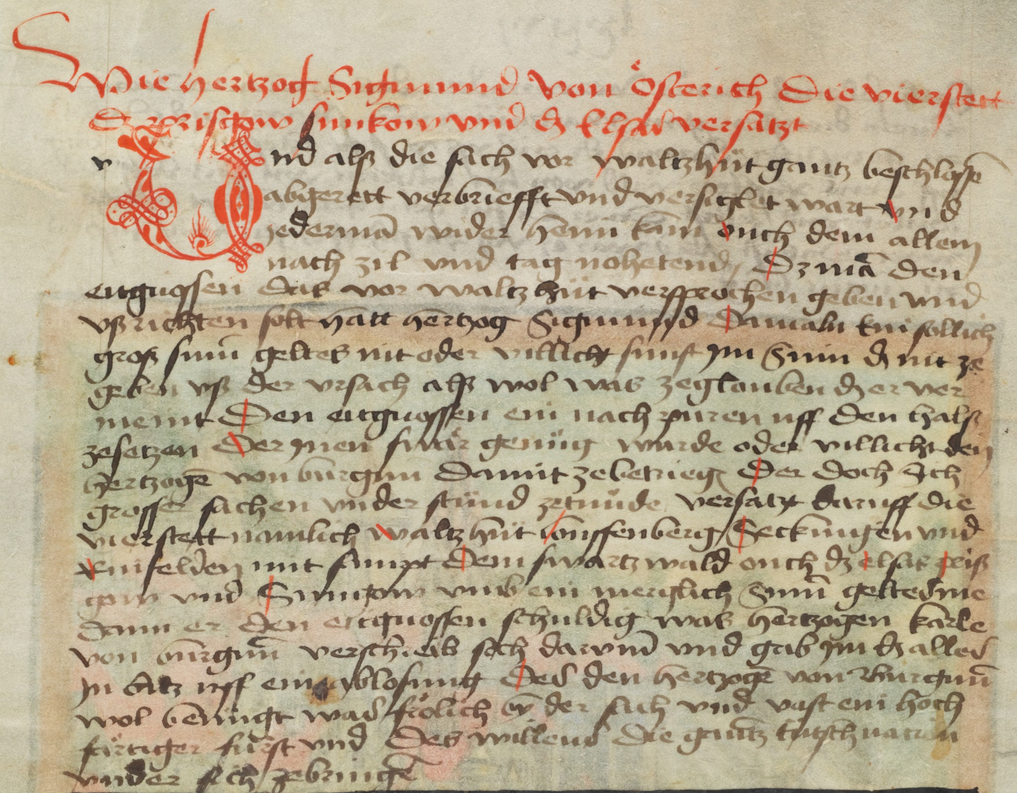 Wie hertzog Sigmund von Österich die vierstett
vnd als die sach vor waltzhůt gantz beschlossē
abgerett verbriefft vnd versiglet wart vnd
yedermā wider heim kam ouch dem allem
nach zil vnd tag nohetend Dz mā den
eitgnossen das vor waltzhůt versprochen geben vnd
vßrichten solt hatt hertzog Sigmund Damaln kein sollich
groß sum̄ geltes nit oder villicht sunst jm Sinn dz nit ze
geben vß der vrsach als wol was zeglouben dz er ver
meint Den eitgnossen ein nachpuren vff den hals
zesetzen Der jnen swär genůg wurde oder villicht den
hertzogē von burgun damit zebetriegē Der doch sich
grosser sachen vnder stůnd zetůnde versatzt daruff die
vierstett namlich waltzhůt louffenberg Seckingen vnd
Rinfelden mit sampt Dem swartzwald ouch dz elsas prisz
gow vnd Suntgow vmb ein mergklich Sum̄ geltes me
dann er den eitgnossen schuldig was hertzogen karle
von burgun̄ verschreib sich darum̄ vnd gab jm dz alles
jn satz vff ein ablosung Des den hertzogē von Burgun̄
wol benůgt was frölich der sach vnd vast ein hoch
fartiger fürst vnd Des willens die gantz tutsch nacion
vnder sich zebringē